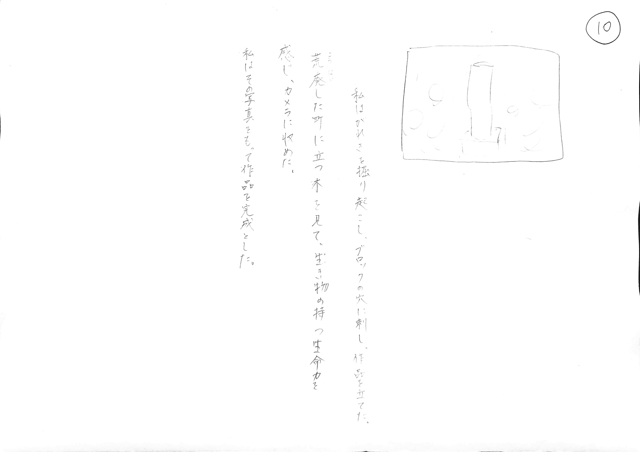 10
私はがれきを掘り起こし、ブロックの穴に刺し、作品を立てた。
荒廃した町に立つ木を見て、生き物の持つ生命力を
感じ、カメラに収めた。
私はその写真をもって作品を完成とした。